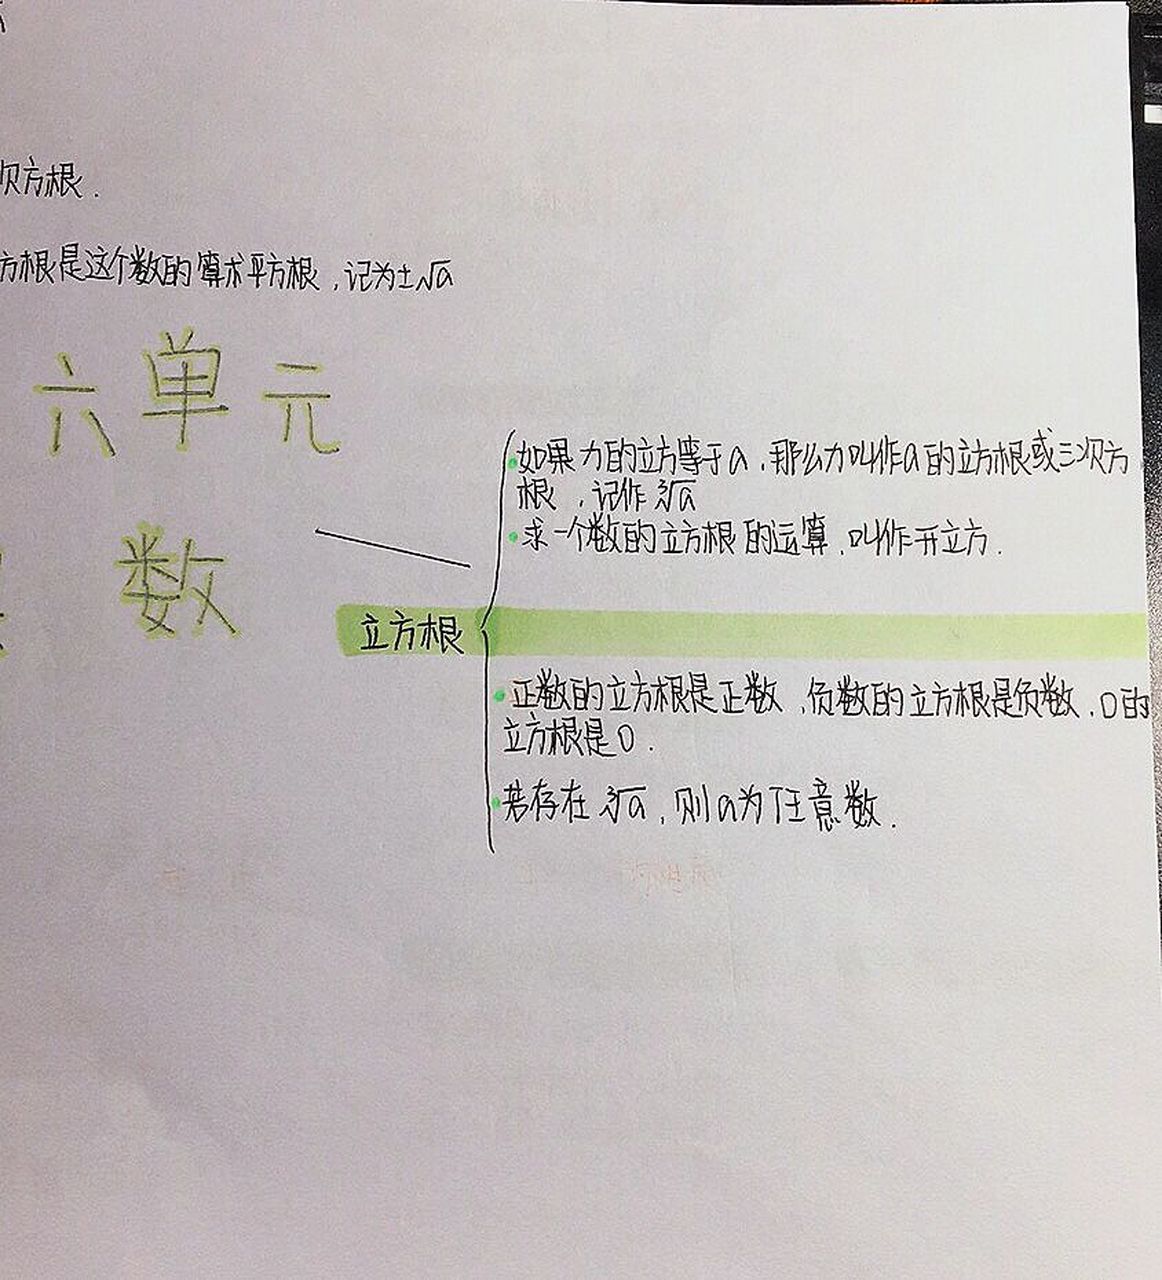 次方根.
方根是这个数的算术平方根,记为±√a
六单元
数
如果力的立方等于a,那么力叫作a的立方根或三次方
根,记作∛a
求一个数的立方根的运算,叫作开立方.
立方根
正数的立方根是正数,负数的立方根是负数,0的
立方根是0.
若存在∛a,则a为任意数.